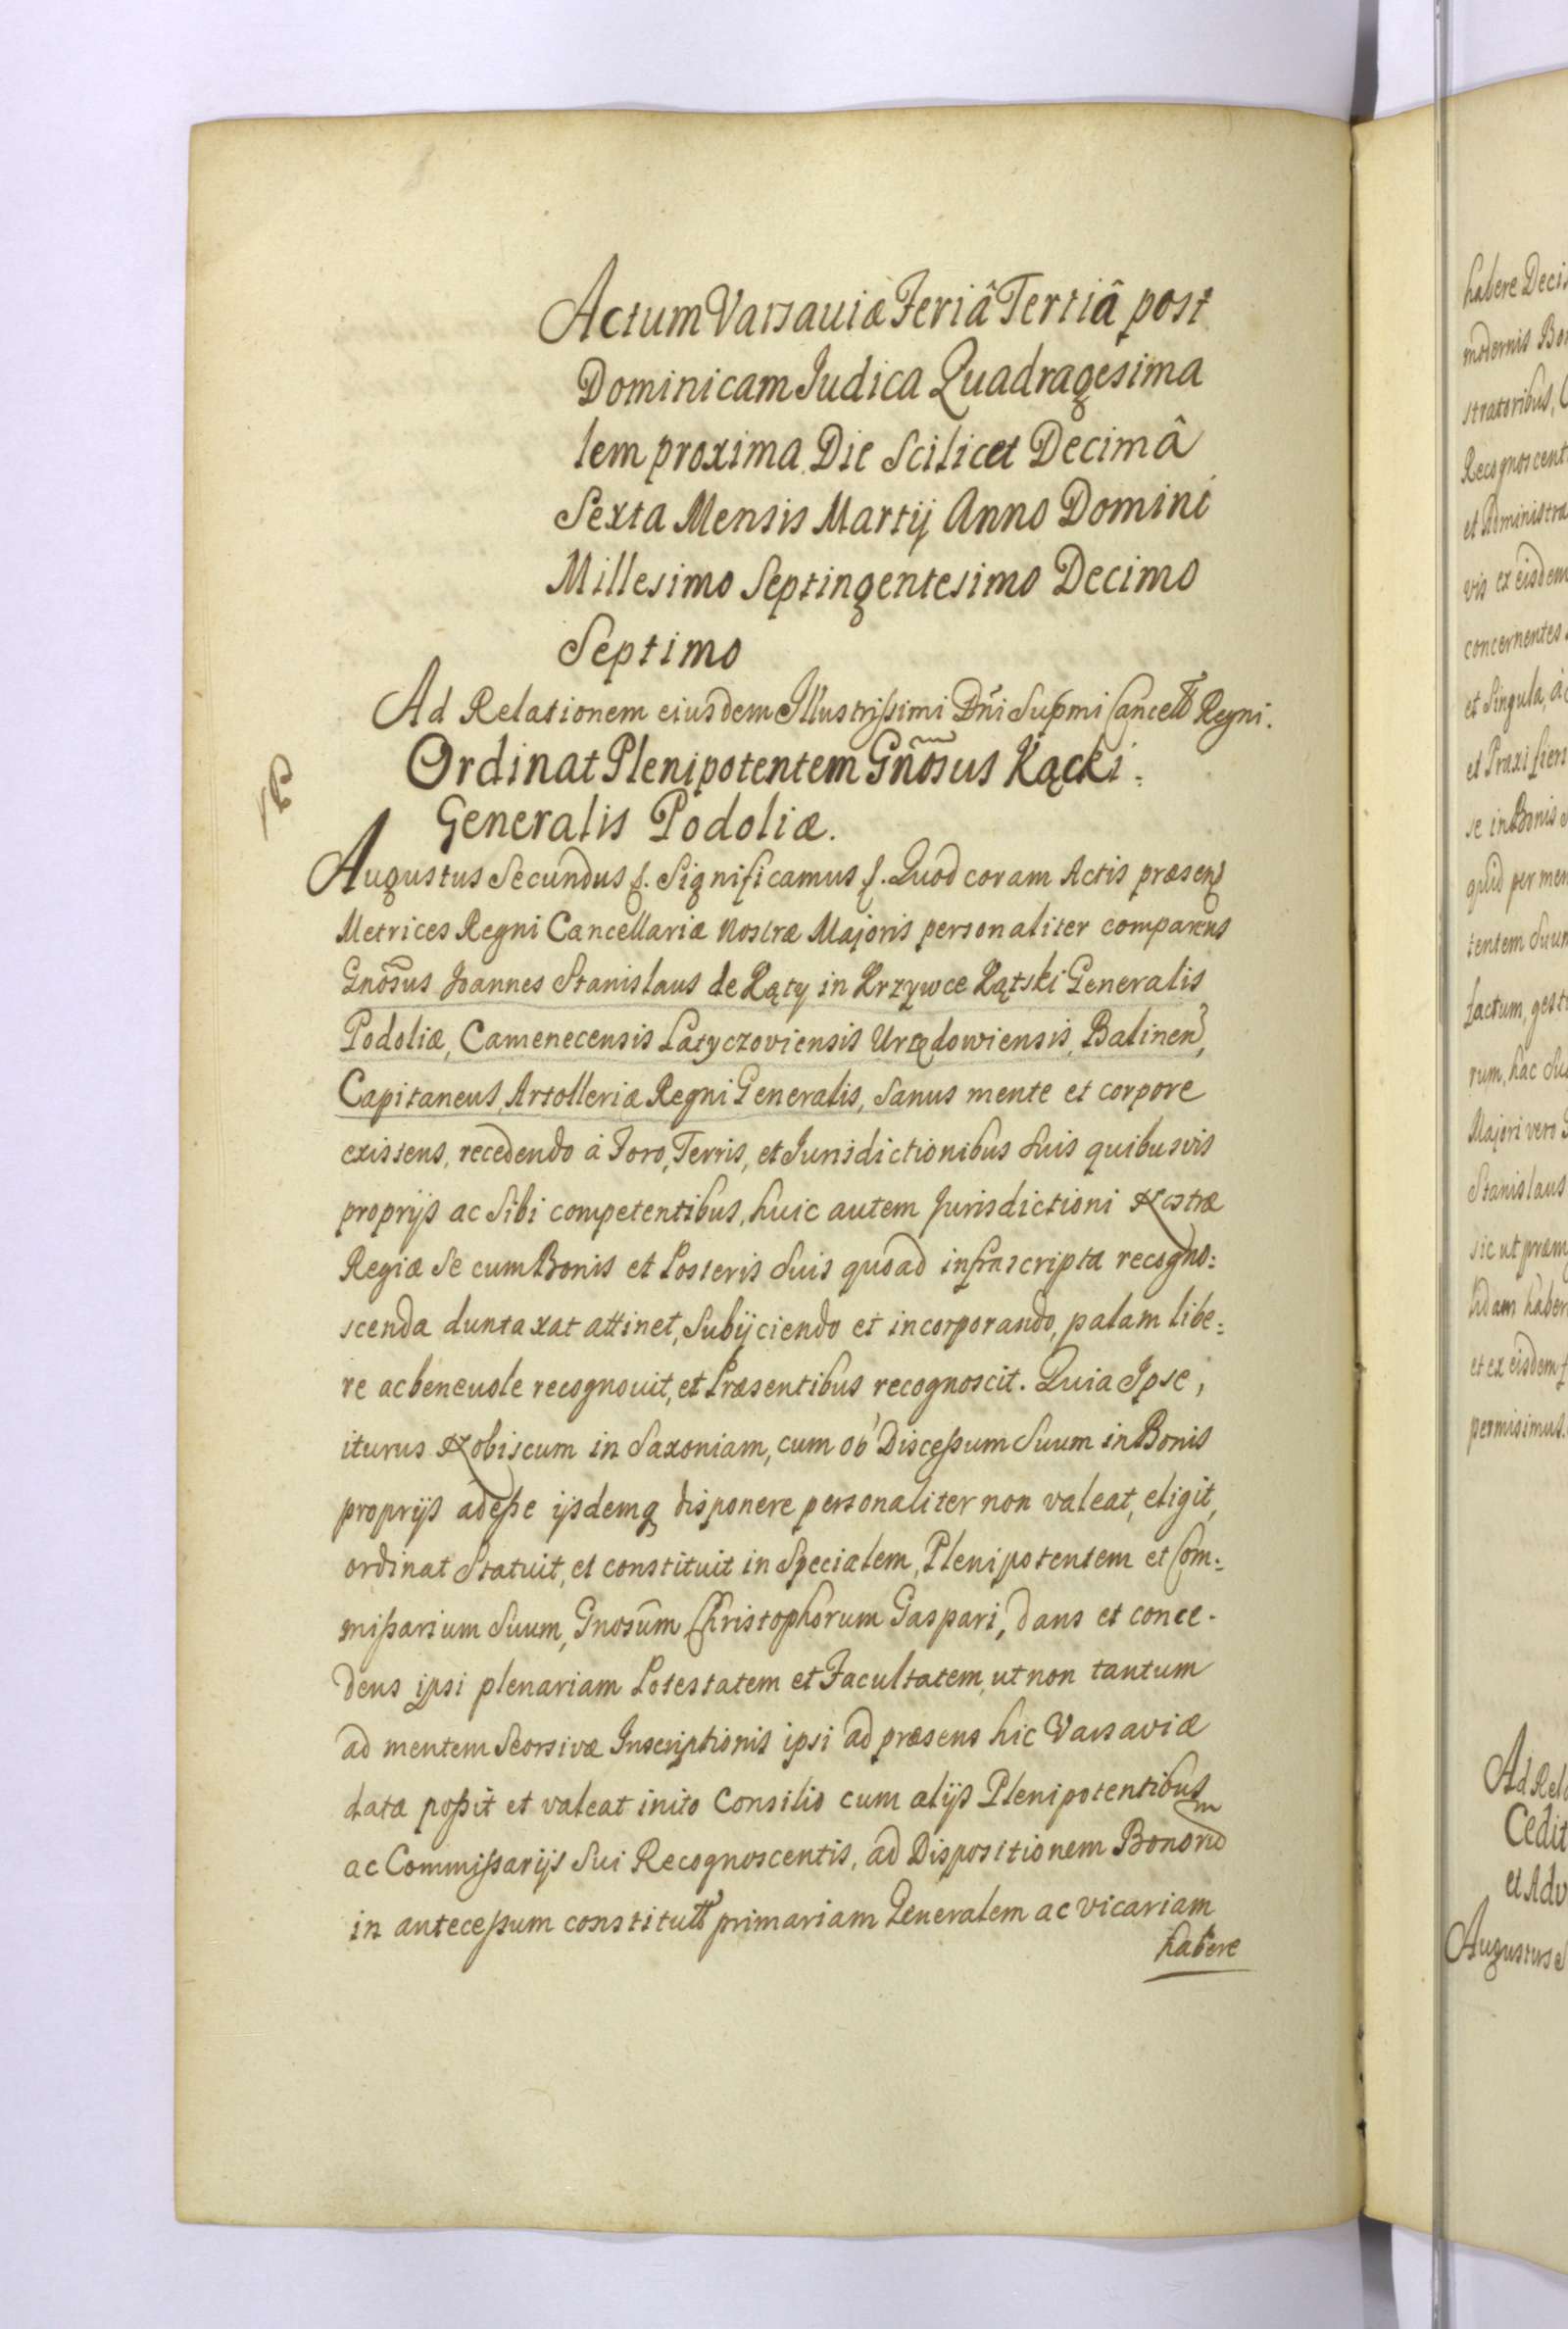 Actum Varsauiæ Feriâ Tertiâ post
Dominicam Judica Quadragesima
lem proxima Die Scilicet Decimâ
Sexta Mensis Martij Anno Domini
Millesimo Septingentesimo Decimo
Septimo
Ad Relationem eiusdem Illustrissimi Dñi Supmi Cancell Regni.
Ordinat Plenipotentem Gnõsus Kącki
Generalis Podoliæ.
Augustus Secundus f. Significamus f. Quod coram Actis præsens
Metrices Regni Cancellariæ Nostræ Majoris personaliter comparens
Gnõsus Joannes Stanislaus de Kąty in Krzywce Kątski Generalis
Podoliæ, Camenecensis Latyczoviensis Urzędowiensis, Balinen,
Capitaneus, Artolleriæ Regni Generalis, Sanus mente et corpore
existens, recedendo à Foro, Terris, et Jurisdictionibus Suis quibusvis
proprijs ac Sibi competentibus, huic autem Jurisdictioni Nostræ
Regiæ Se cum Bonis et Posteris Suis quoad infrascripta recogno:
scenda duntaxat attinet, Subijciendo et incorporando, palam libe:
re ac beneuole recognouit, et Præsentibus recognoscit. Quia Ipse,
iturus Nobiscum in Saxoniam, cum ob Discessum Suum in Bonis
proprijs adesse ijsdemq disponere personaliter non valeat, eligit,
ordinat Statuit, et constituit in Specialem, Plenipotentem et Com:
missarium Suum, Gnosum Christophorum Gaspari, dans et conce-
dens ipsi plenariam Potestatem et Facultatem, ut non tantum
ad mentem Seorsivæ Inscriptionis ipsi ad præsens hic Varsaviæ
datæ possit et valeat inito Consilio cum alijs Plenipotentibus
ac Commissarijs Sui Recognoscentis, ad Dispositionem Bonorum
in antecessum constitutt primariam Generalem ac vicariam
habere
habere Deci
modernis Bo
stratoribus, C
Recognoscent
et Administra
vis ex eisdem
concernentes
et Singula, a
et Praxi fieri
se in Bonis
quid per men
tentem Suum
factum, gest
rum, hac
Majori vero
Stanislaus
sic ut præm
haber
et ex eisdem
permisimus.
Ad Rel
Cedit
et Adv
Augustus S